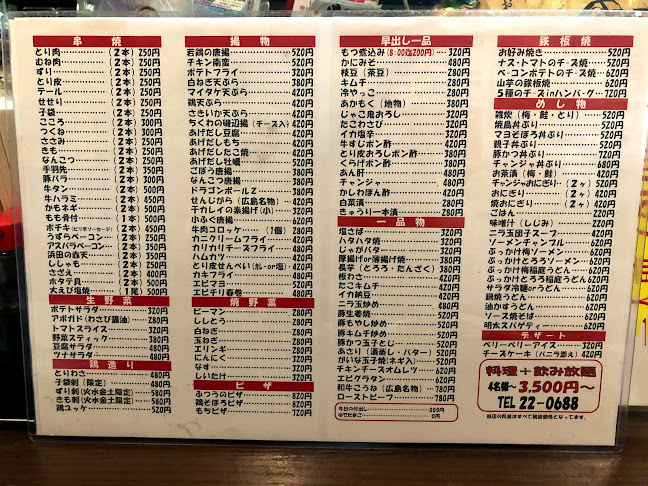 串焼
とり肉 (2本) 250円
むね肉 (2本) 250円
ずり (2本) 250円
とり皮 (2本) 250円
テール (2本) 250円
せせり (2本) 300円
子袋 (2本) 300円
こころ (2本) 300円
つくね (2本) 300円
ささみ (2本) 300円
きも (2本) 300円
なんこつ (2本) 350円
手羽先 (2本) 350円
豚バラ (2本) 300円
牛タン (2本) 500円
牛ハラミ (2本) 450円
かもネギ (1本) 500円
もも骨付 (1本) 500円
ポチキ(ピリ辛ソーセージ) (2本) 350円
うずらベーコン (2本) 350円
アスパラベーコン (2本) 350円
浜田の赤天 (1本) 350円
ししゃも (2本) 250円
さざえ (2本) 400円
ホタテ貝 (2本) 500円
大えび塩焼 (1尾) 500円
生野菜
ポテトサラダ 320円
アボガド(わさび醤油) 320円
トマトスライス 320円
野菜スティック 380円
豆腐サラダ 480円
ツナサラダ 480円
鶏造り
とりわさ 480円
子袋刺(限定) 580円
ずり刺(火水金土限定) 580円
きも刺(火水金土限定) 580円
鶏ユッケ 520円
揚物
若鶏の唐揚 520円
チキン南蛮 520円
ポテトフライ 320円
ちくわ天ぷら 320円
マイタケ天ぷら 320円
鶏天ぷら 420円
さきいか天ぷら 420円
ちくわの磯辺揚(チーズ入) 420円
あげだし豆腐 420円
あげだしもち 520円
あげだしたこ焼 520円
あげだし牡蠣 520円
ごぼう唐揚 380円
なんこつ唐揚 380円
ドラゴンボールZ 380円
せんじがら(広島名物) 380円
干カレイの素揚げ(小) 320円
小ふぐ唐揚 420円
牛肉コロッケ (1個) 280円
カニクリームフライ 420円
カリカリチーズフライ 420円
ハムカツ 420円
とり皮せんべい(カレーor塩) 420円
カキフライ 520円
エビマヨ 520円
エビチリ春巻 480円
焼野菜
ピーマン 280円
ししとう 280円
白ねぎ 280円
玉ねぎ 280円
エリンギ 320円
にんにく 320円
なす 320円
しいたけ 320円
ピザ
ふつうのピザ 820円
鶏そぼろピザ 820円
もちピザ 820円
早出し一品
もつ煮込み(8:00迄200円) 320円
かにみそ 480円
枝豆(茶豆) 380円
キムチ 280円
冷やっこ 280円
あかもく(地物) 380円
じゃこ鬼おろし 320円
たこわさび 320円
イカ塩辛 320円
牛すじポン酢 420円
とり皮おろしポン酢 380円
くらげポン酢 380円
あん肝 680円
チャンジャ 480円
かしわポン酢 420円
白菜漬 280円
きゅうり一本漬 280円
一品物
塩さば 380円
ハタハタ焼 320円
じゃがバター 380円
厚揚げor薄揚げ焼 380円
長芋(とろろ・たんざく) 380円
板わさ 380円
たこキムチ 520円
イカ納豆 420円
ニラ玉炒め 480円
豚生姜焼 520円
豚もやし炒め 520円
豚キムチ炒め 520円
豚かつ玉子とじ 520円
あさり(酒蒸し・バター) 520円
がいな玉子焼(ネギ入) 520円
チキンチーズオムレツ 620円
エビグラタン 620円
和牛こうね(広島名物) 780円
ローストビーフ 780円
今日の付出し 200円
ゆでたまご 0円
鉄板焼
お好み焼き 520円
ナス・トマトのチーズ焼 520円
ベーコンポテトのチーズ焼 620円
山芋の鉄板焼 620円
5種のチーズinハンバーグ 720円
めし物
雑炊(梅・鮭・とり) 520円
焼鳥丼ぶり 520円
マヨそぼろ丼ぶり 520円
親子丼ぶり 520円
豚かつ丼ぶり 620円
チャンジャ丼ぶり 680円
お茶漬(梅・鮭) 420円
チャンジャおにぎり (2ヶ) 520円
おにぎり (2ヶ) 420円
焼おにぎり (2ヶ) 420円
ごはん 220円
味噌汁(しじみ) 220円
ニラ玉団子スープ 420円
ソーメンチャンプル 620円
ぶっかけソーメン 520円
ぶっかけとろろソーメン 620円
ぶっかけ梅稲庭うどん 620円
ぶっかけとろろ稲庭うどん 620円
サラダ冷麺orうどん 620円
鍋焼うどん 620円
油かすうどん 620円
ソース焼そば 620円
明太スパゲティー 620円
デザート
ベリーベリーアイス 320円
チーズケーキ(バニラ添え) 420円
料理+飲み放題
4名様〜3,500円〜
TEL 22-0688
当店の料金はすべて税抜価格となってます。